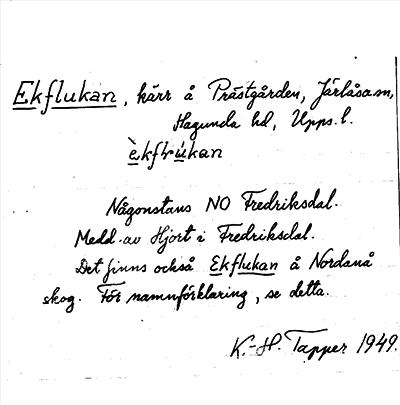 Ekflukan, kärr å Prästgården, Järlåsa sn,
Hagunda hd, Upps. l.
èkflu̇kan
Någonstans NO Fredriksdal.
Medd. av Hjort i Fredriksdal.
Det finns också Ekflukan å Nordanå
skog. För namnförklaring, se detta.
K.-H. Tapper 1949.